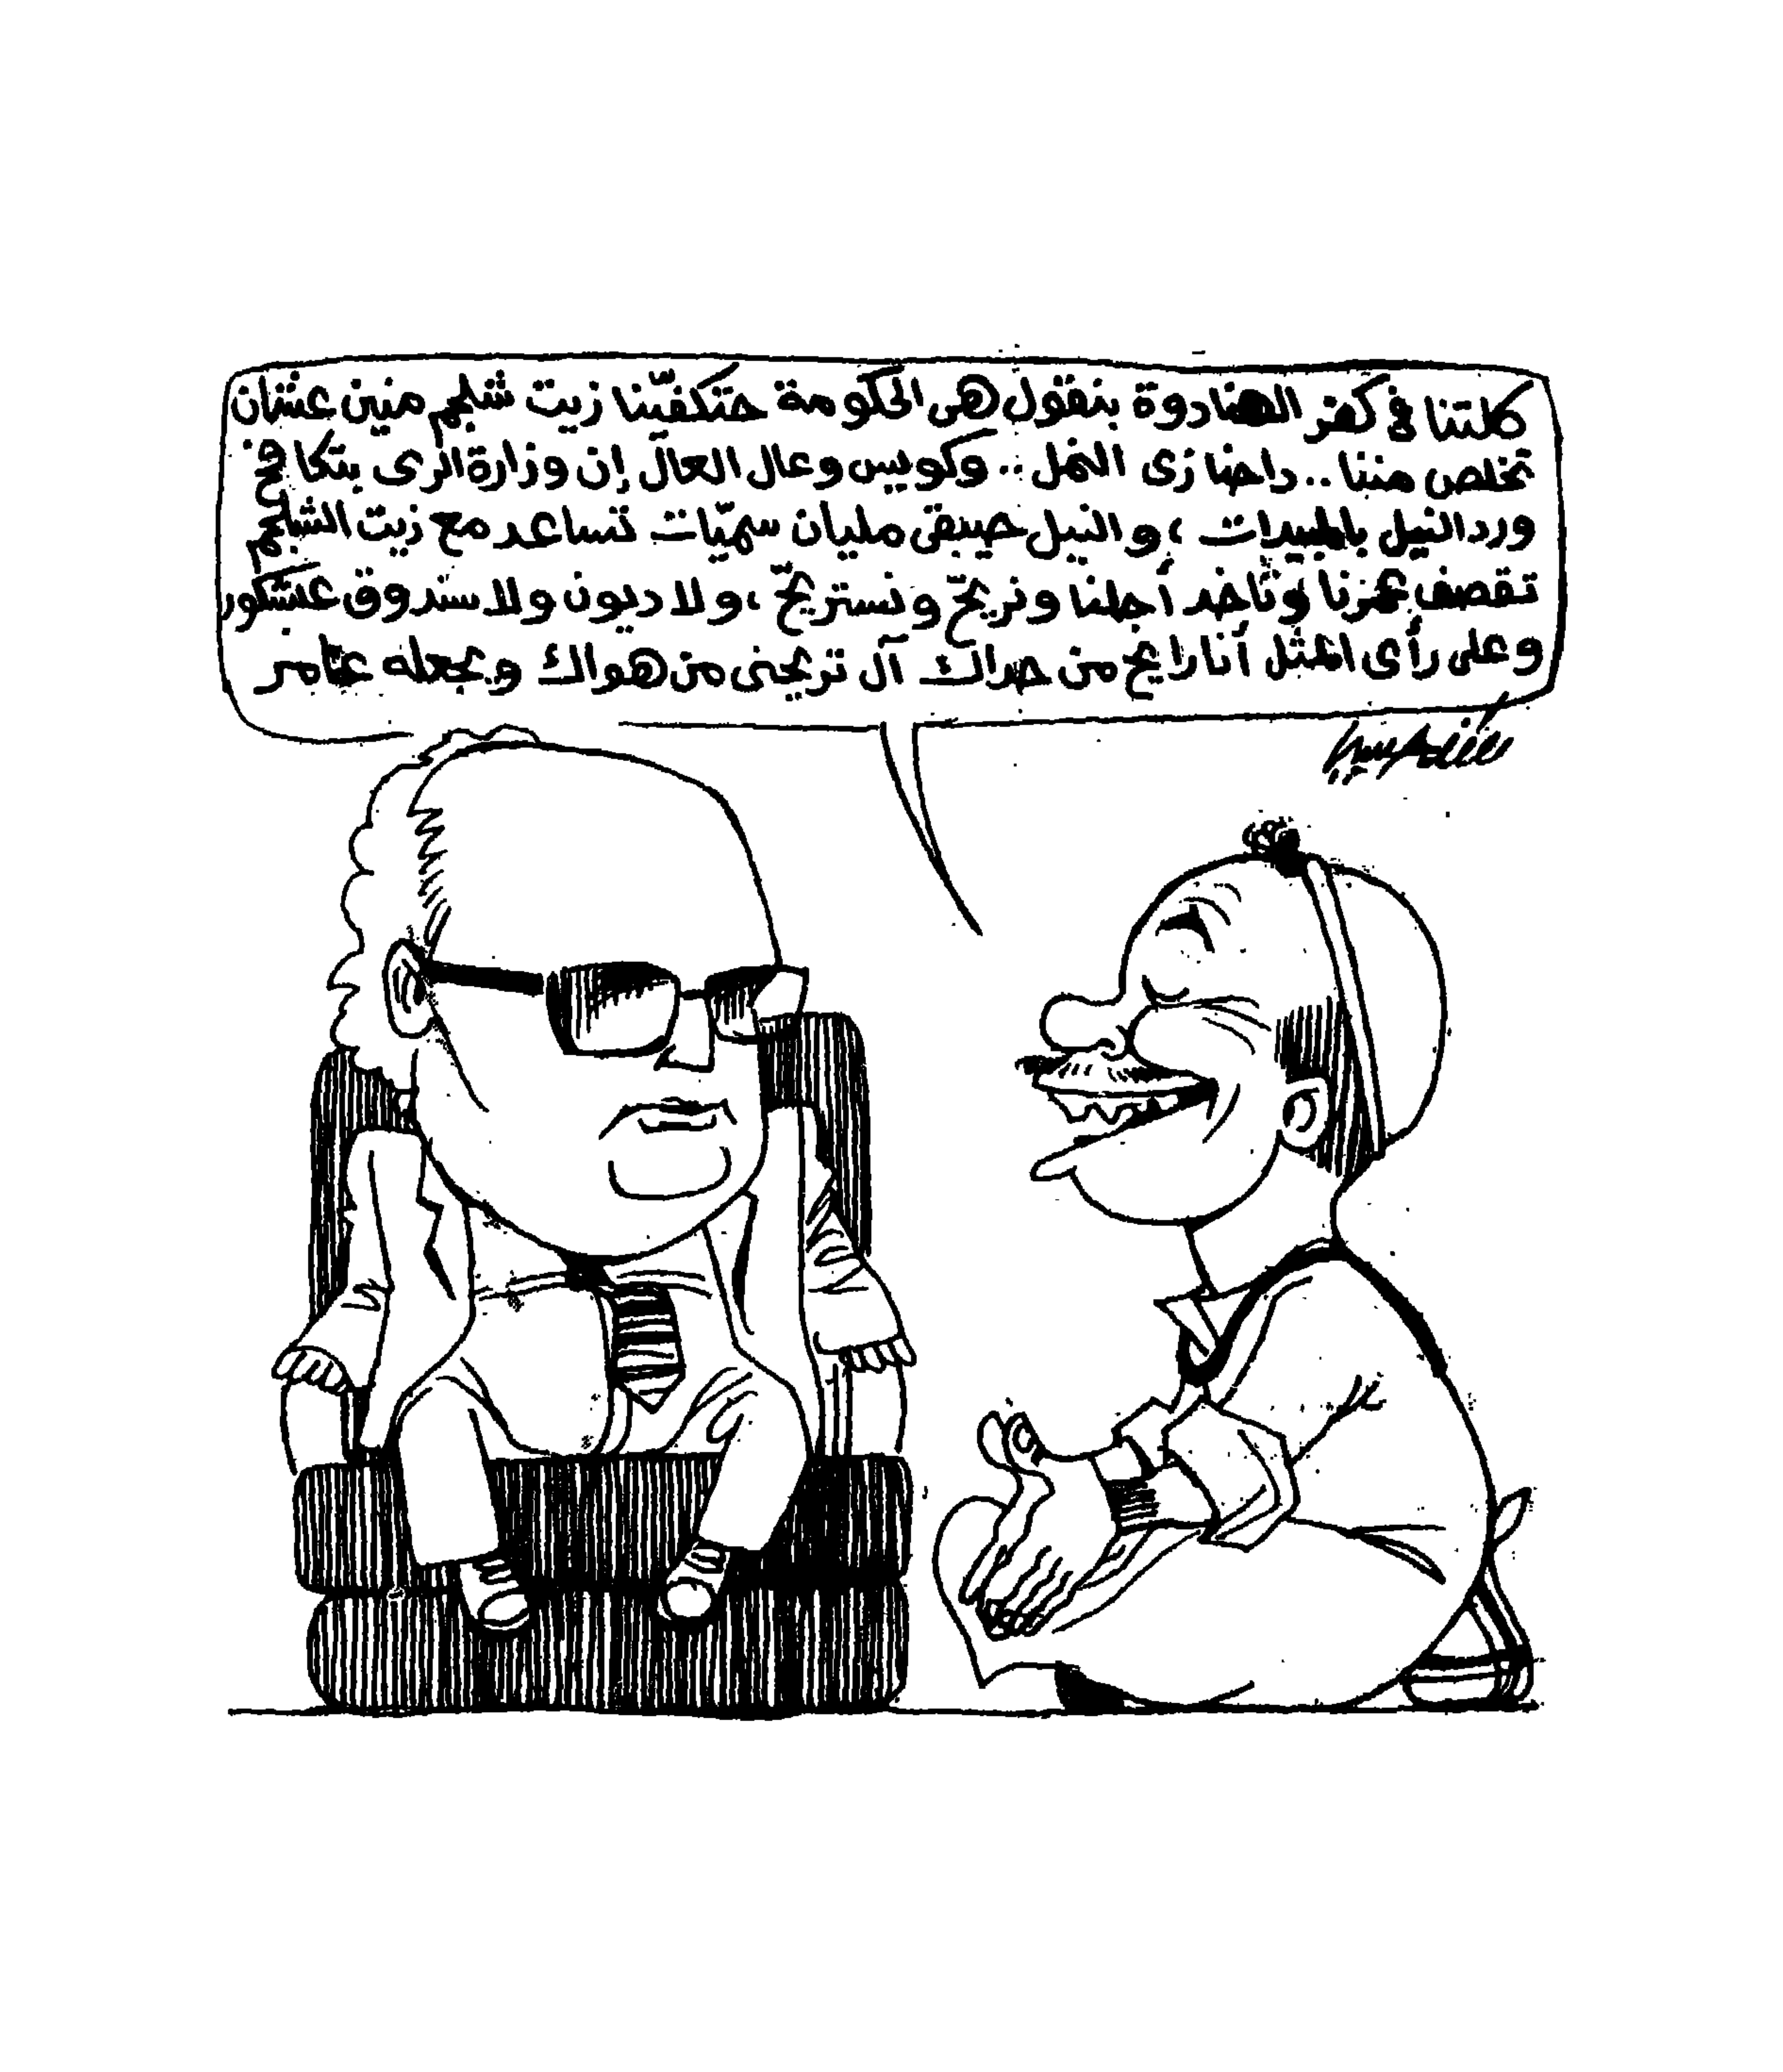 كلتنا فى كفر الهنادوة بنقول هى الحكومة حتكفّينا زيت شلجم منين عشان
تخلص مننا .. داحنا زى النمل .. وكويس وعال العال إن وزارة الرى بتكافح
ورد النيل بالمبيدات ، والنيل حيبقى مليان سميّات تساعد مع زيت الشلجم
تقصف عمرنا وتاخد أجلنا ونريّح ونستريّح ، ولا ديون ولا سندوق عشكور
وعلى رأى المثل أنا رايح من حداك آل تريحنى من هواك ويجعله عامر